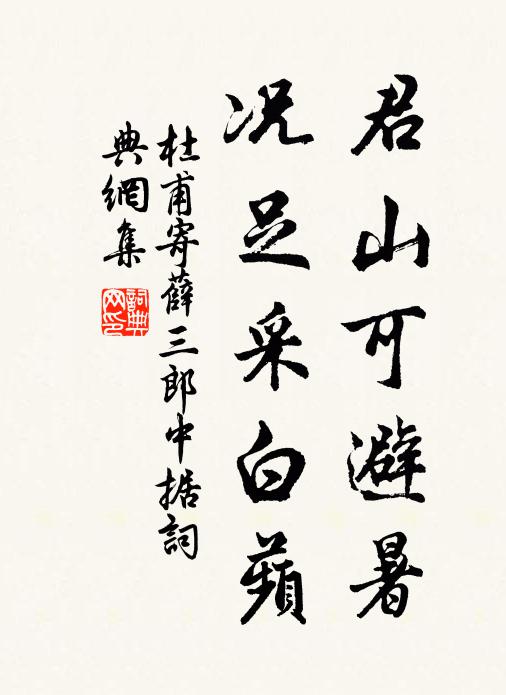 君山可避暑
况足采白蘋
杜甫寄薛三郎中据詞
典網集
詞典
网印